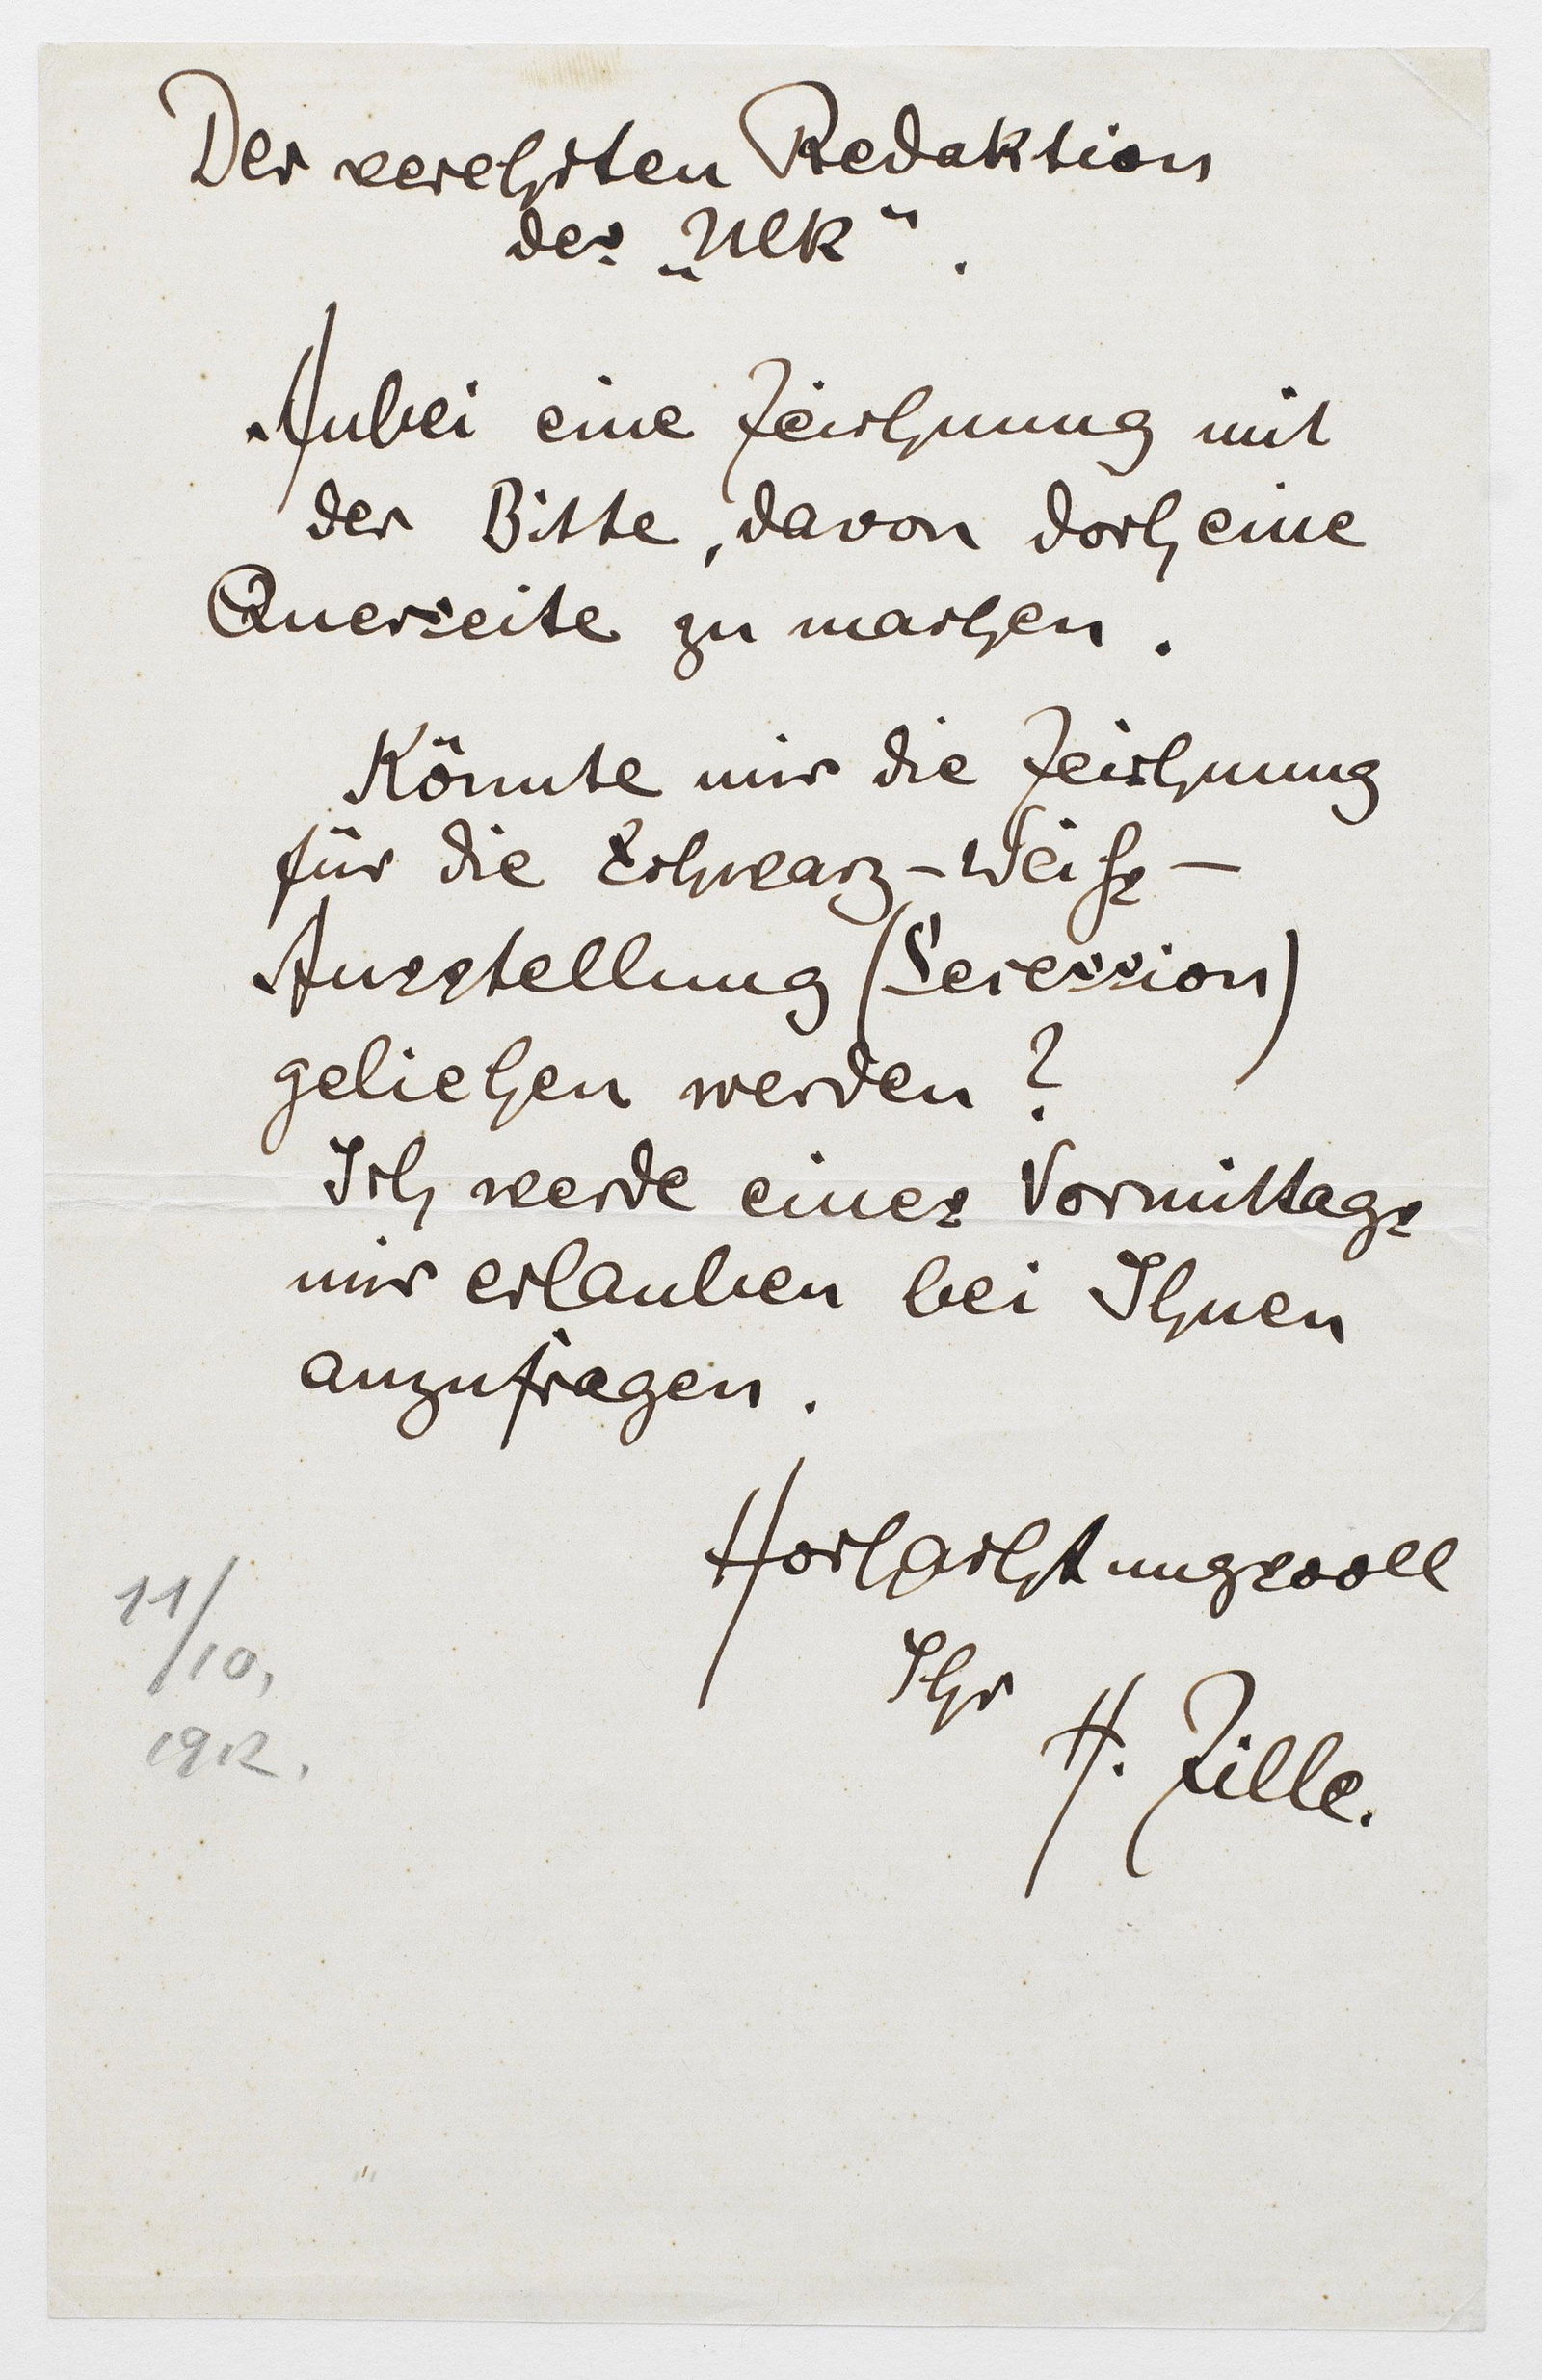 Der verehrten Redaktion
des „Ulk“.
Anbei eine Zeichnung mit
der Bitte, davon doch eine
Querseite zu machen.
Könnte mir die Zeichnung
für die Schwarz-Weiß-
Ausstellung (Secession)
geliehen werden?
Ich werde eines Vormittags
mir erlauben bei Ihnen
anzufragen.
Hochachtungsvoll
Ihr
H. Zille.
11/
/10,
1912.